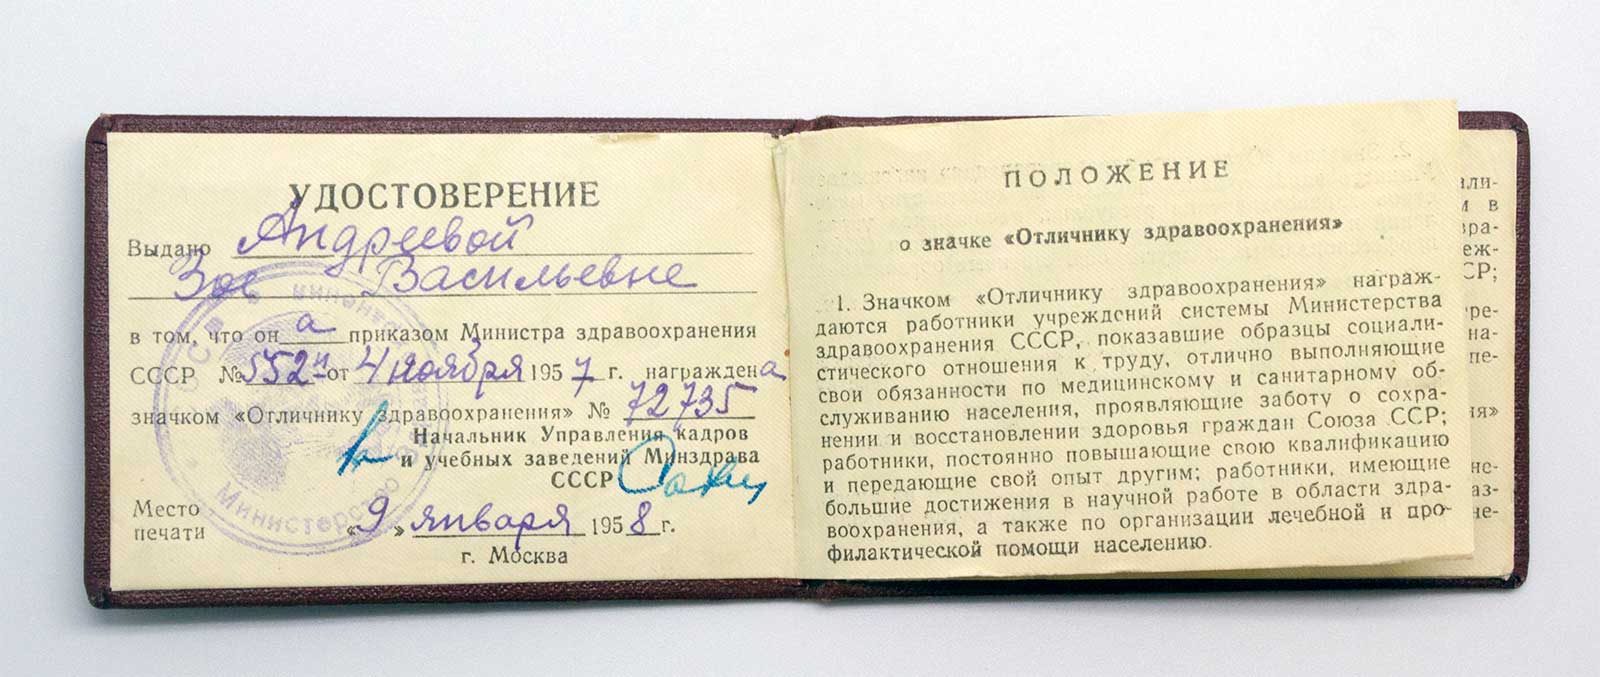 УДОСТОВЕРЕНИЕ
Выдано Андреевой
Зое Васильевне
в том, что он а приказом Министра здравоохранения
СССР № 552п от 4 ноября 1957 г. награжден а
значком «Отличнику здравоохранения» № 72735
Начальник Управления кадров
и учебных заведений Минздрава
СССР
Место
печати
«9» января 1958 г.
г. Москва
Министерство
ПОЛОЖЕНИЕ
о значке «Отличнику здравоохранения»
1. Значком «Отличнику здравоохранения» награж-
даются работники учреждений системы Министерства
здравоохранения СССР, показавшие образцы социали-
стического отношения к труду, отлично выполняющие
свои обязанности по медицинскому и санитарному об-
служиванию населения, проявляющие заботу о сохра-
нении и восстановлении здоровья граждан Союза ССР;
работники, постоянно повышающие свою квалификацию
и передающие свой опыт другим; работники, имеющие
большие достижения в научной работе в области здра-
воохранения, а также по организации лечебной и про-
филактической помощи населению.